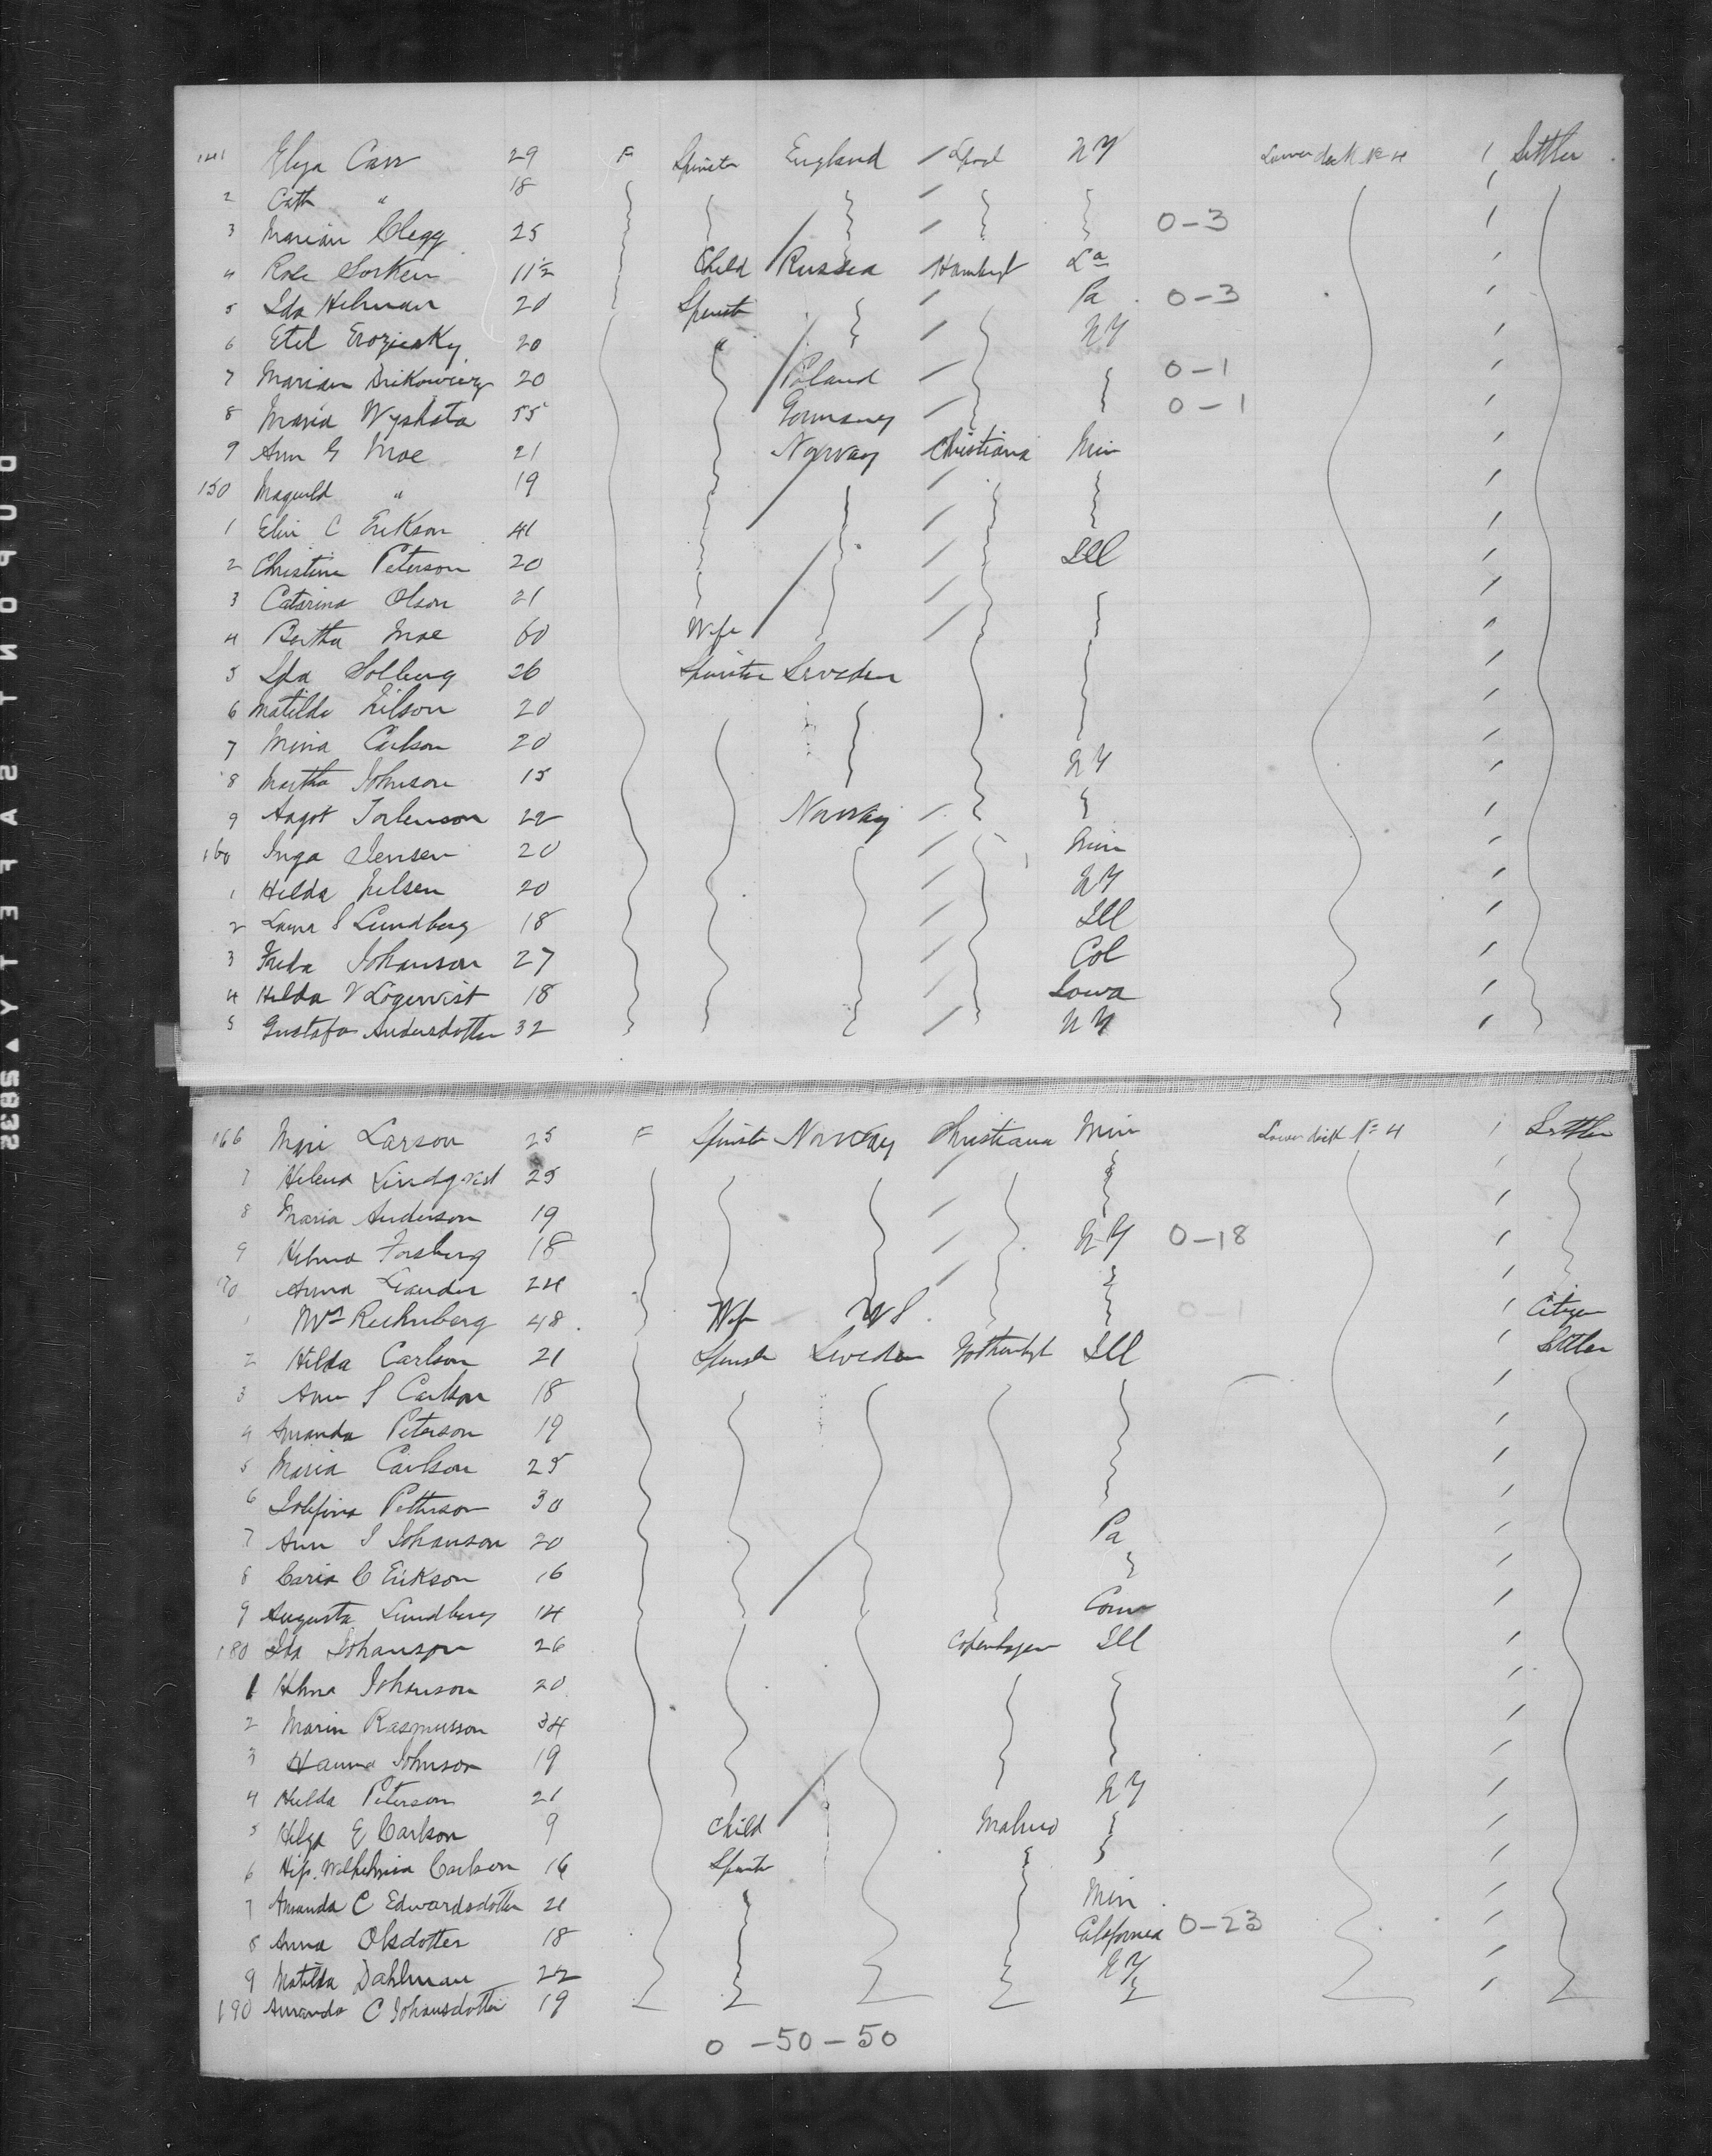 141 Eliza Carr 29 F Spinster England / Lpool NY Lower deck No 4 1 Settler
2 Cath " 18
3 Marian Clegg 25 0-3
4 Rose Sorken 11½ Child Russia Hamburg La
5 Ida Helman 20 Spinster Pa 0-3
6 Etel 20 " NY
7 Marian 20 Poland 0-1
8 Maria Wyshata 55 Germany 0-1
9 Ann G Moe 21 Norway Christiana Min
150 Maguild " 19
1 Elin C Erikson 41
2 Christine Peterson 20 Ill
3 Catarina Olson 21
4 Bertha Moe 60 Wife
5 Ida Solberg 26 Spinster Sweden
6 Matilda Nilson 20
7 Mina Carlson 20
8 Martha Johnson 15 NY
9 Aagot Torlenson 22 Norway
160 Inga Jensen 20 Min
1 Hilda Nelsen 20 NY
2 Laura S Lundberg 18 Ill
3 Freda Johanson 27 Col
4 Hilda V Logenvist 18 Iowa
5 Gustafa Andersdotter 32 NY
166 Mari Larson 25 F Spinster Norway Christiana Min Lower deck No 4 1 Settler
7 Helena Lindqvist 25
8 Maria Anderson 19
9 Hilma Forsberg 18 NY 0-18
70 Anna Leander 24
1 Mrs Reichnberg 48 Wife US 0-1 Citizen
2 Hilda Carlson 21 Spinster Sweden Gothenbgh Ill Settler
3 Ann S Carlson 18
4 Amanda Peterson 19
5 Maria Carlson 25
6 Josefina Petterson 30
7 Ann S Johanson 20 Pa
8 Caria C Erikson 16
9 Augusta Lundberg 14 Conn
180 Ida Johanson 26 Copenhagen Ill
1 Hilma Johanson 20
2 Marin Rasmusson 34
3 Hanna Johnson 19
4 Hulda Peterson 21 NY
5 Helga E Carlson 9 Child Malmo
6 Wilhelmina Carlson 16 Spinster
7 Amanda C Edwardsdotter 21 Min
8 Anna Olsdotter 18 California 0-23
9 Matilda Dahlman 22 NY
190 Amanda C Johansdotter 19
0 - 50 - 50
DUPONT SAFETY 5832